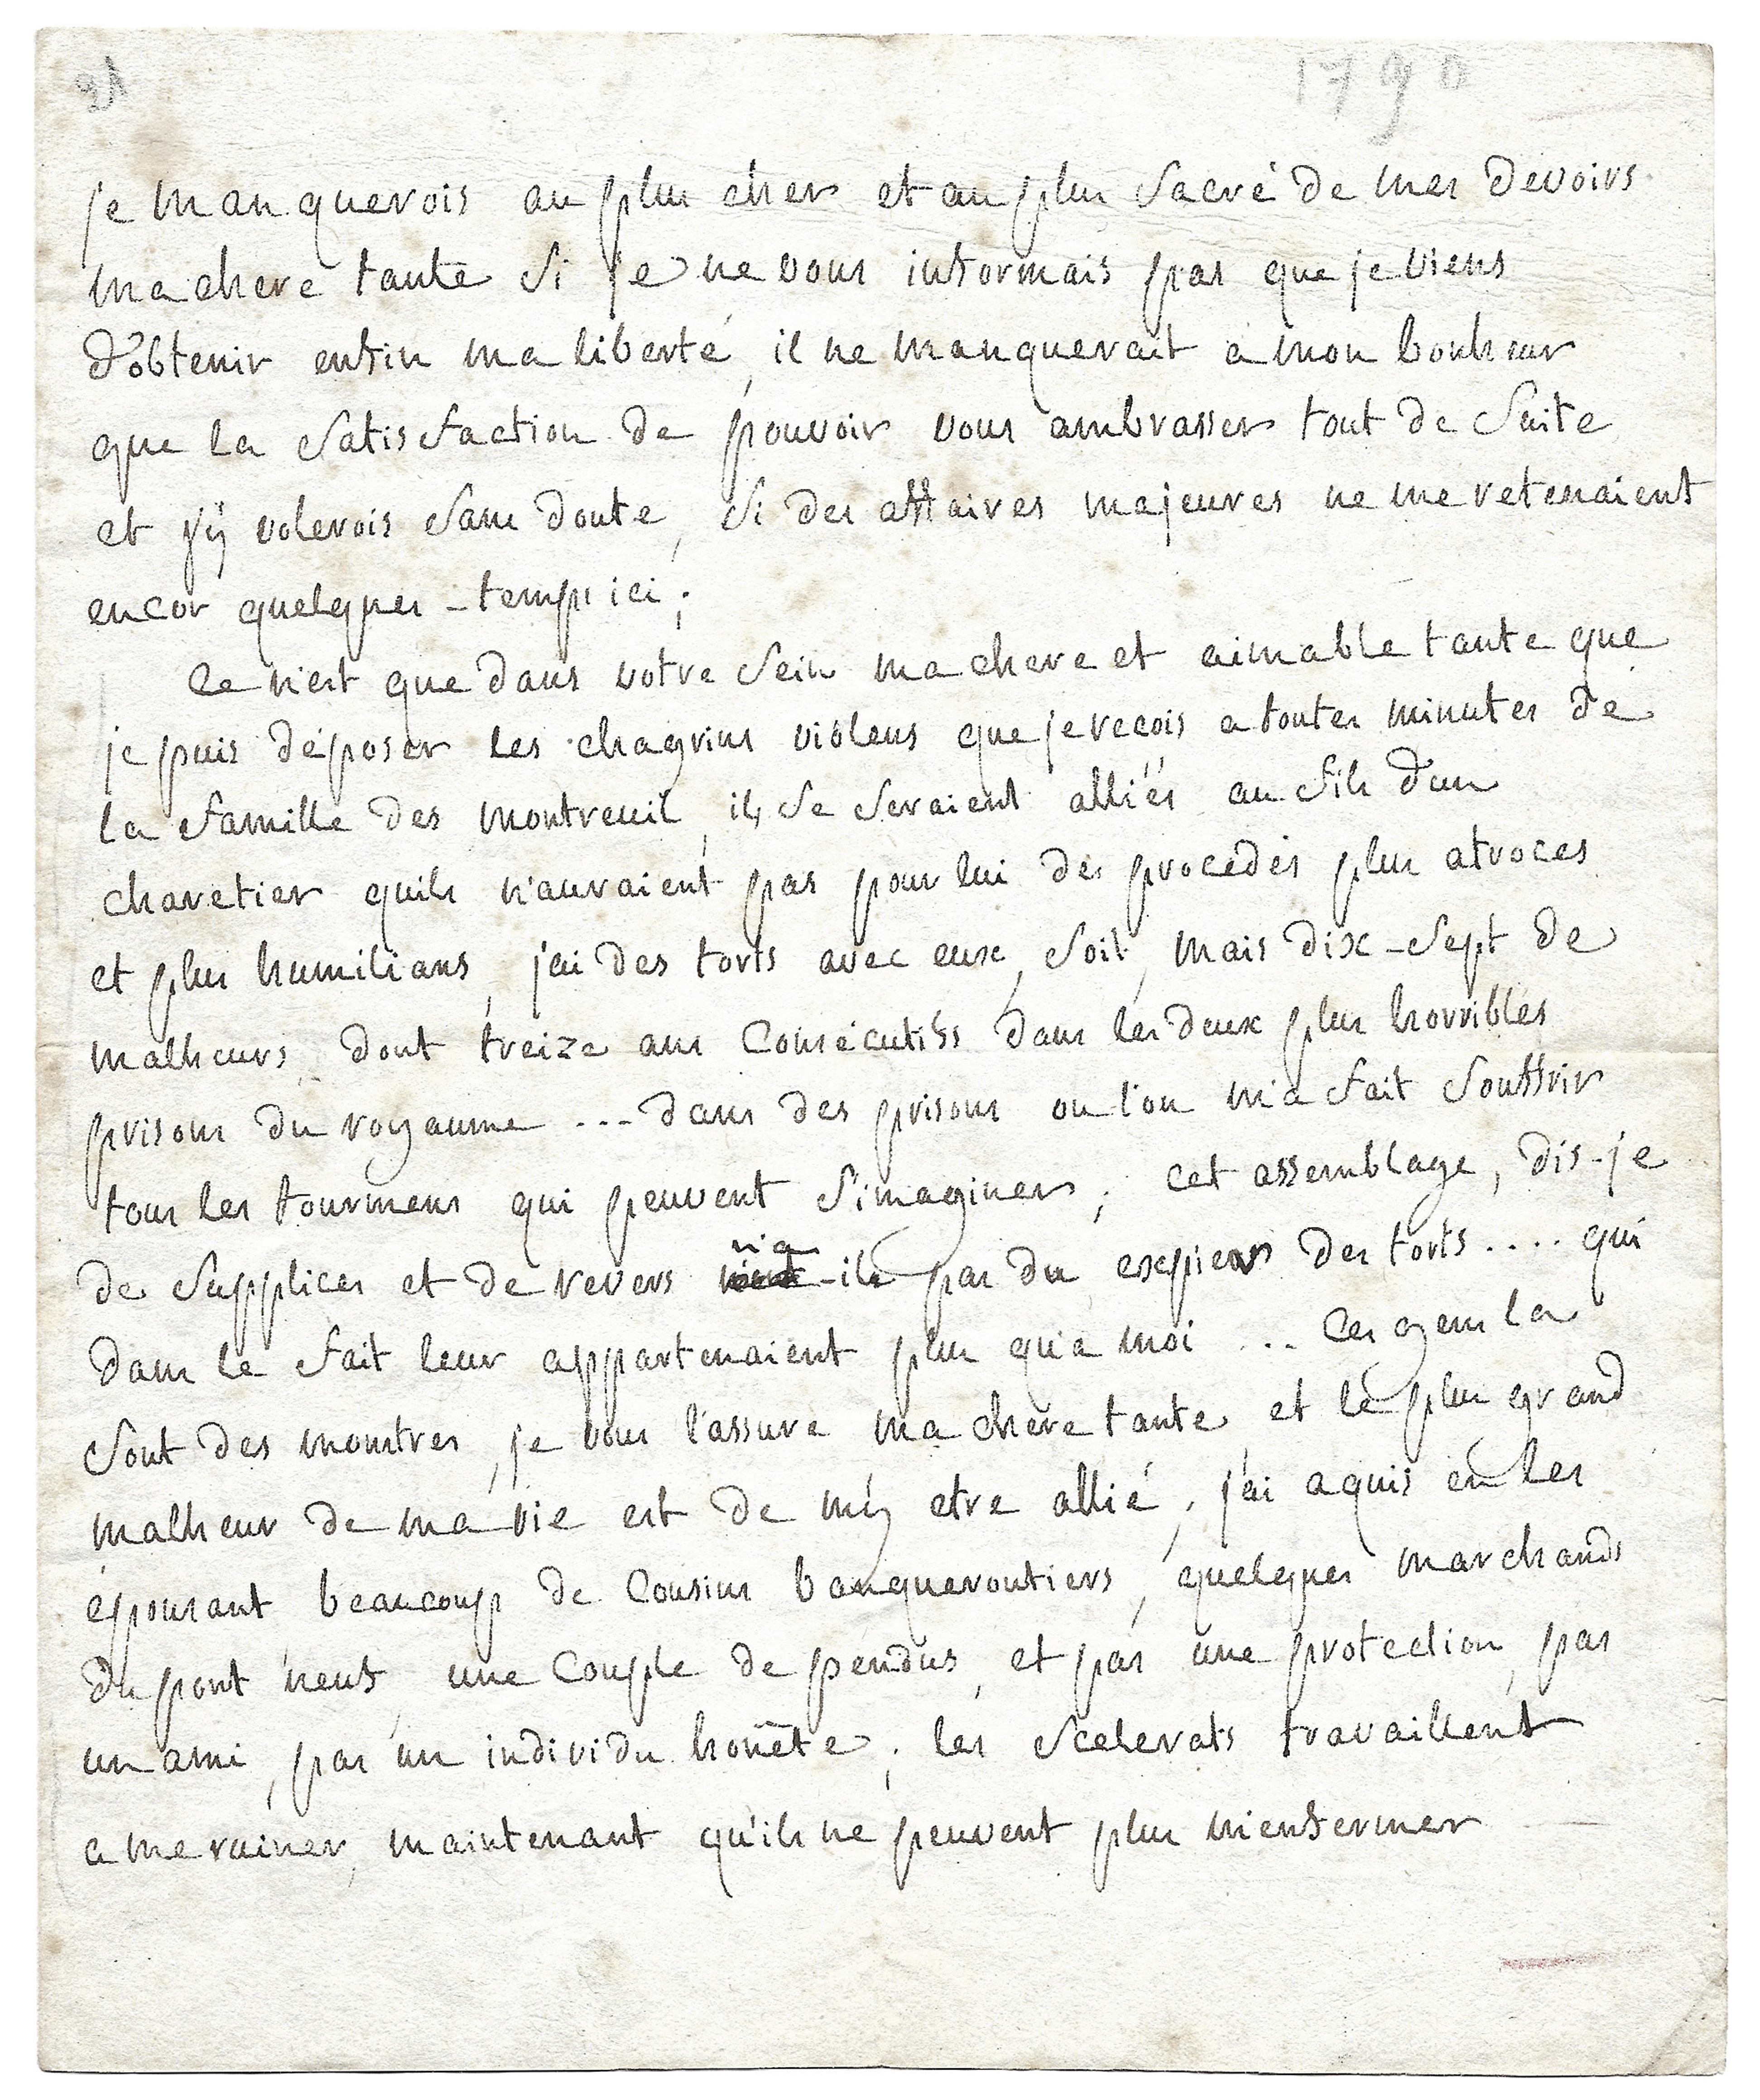 21
1790
je manquerois au plus cher et au plus sacré de mes devoirs
ma chere tante si je ne vous informais pas que je viens
d'obtenir enfin ma liberté, il ne manquerait a mon bonheur
que la satisfaction de pouvoir vous ambrasser tout de suite
et j'ÿ volerois sans doute, si des affaires majeures ne me retenaient
encor quelques-temps ici;
Ce n'est que dans votre sein ma chere et aimable tante que
je puis déposer les chagrins violens que je recois a toutes minutes de
la famille des montreuil, ils se seraient alliés au fils d'un
charetier quils n'auraient pas pour lui des procedés plus atroces
et plus humilians, j'ai des torts avec eux, soit, mais dix-sept de
malheurs, dont treize ans consécutifs dans les deux plus horribles
prisons du royaume ... dans des prisons ou l'on m'a fait souffrir
tous les tourmens qui peuvent s'imaginer; cet assemblage, dis-je
de supplices et de revers n'a-ils pas du expier des torts .... qui
dans le fait leur appartenaient plus qu'a moi ... Ces gens la
sont des monstres, je vous l'assure ma chere tante, et le plus grand
malheur de ma vie est de m'y etre allié, j'ai aquis en les
épousant beaucoup de cousins banqueroutiers, quelques marchands
du pont neuf, une couple de pendus, et pas une protection, pas
un ami, pas un individu honête; les scelerats travaillent
a me ruiner, maintenant qu'ils ne peuvent plus m'enfermer